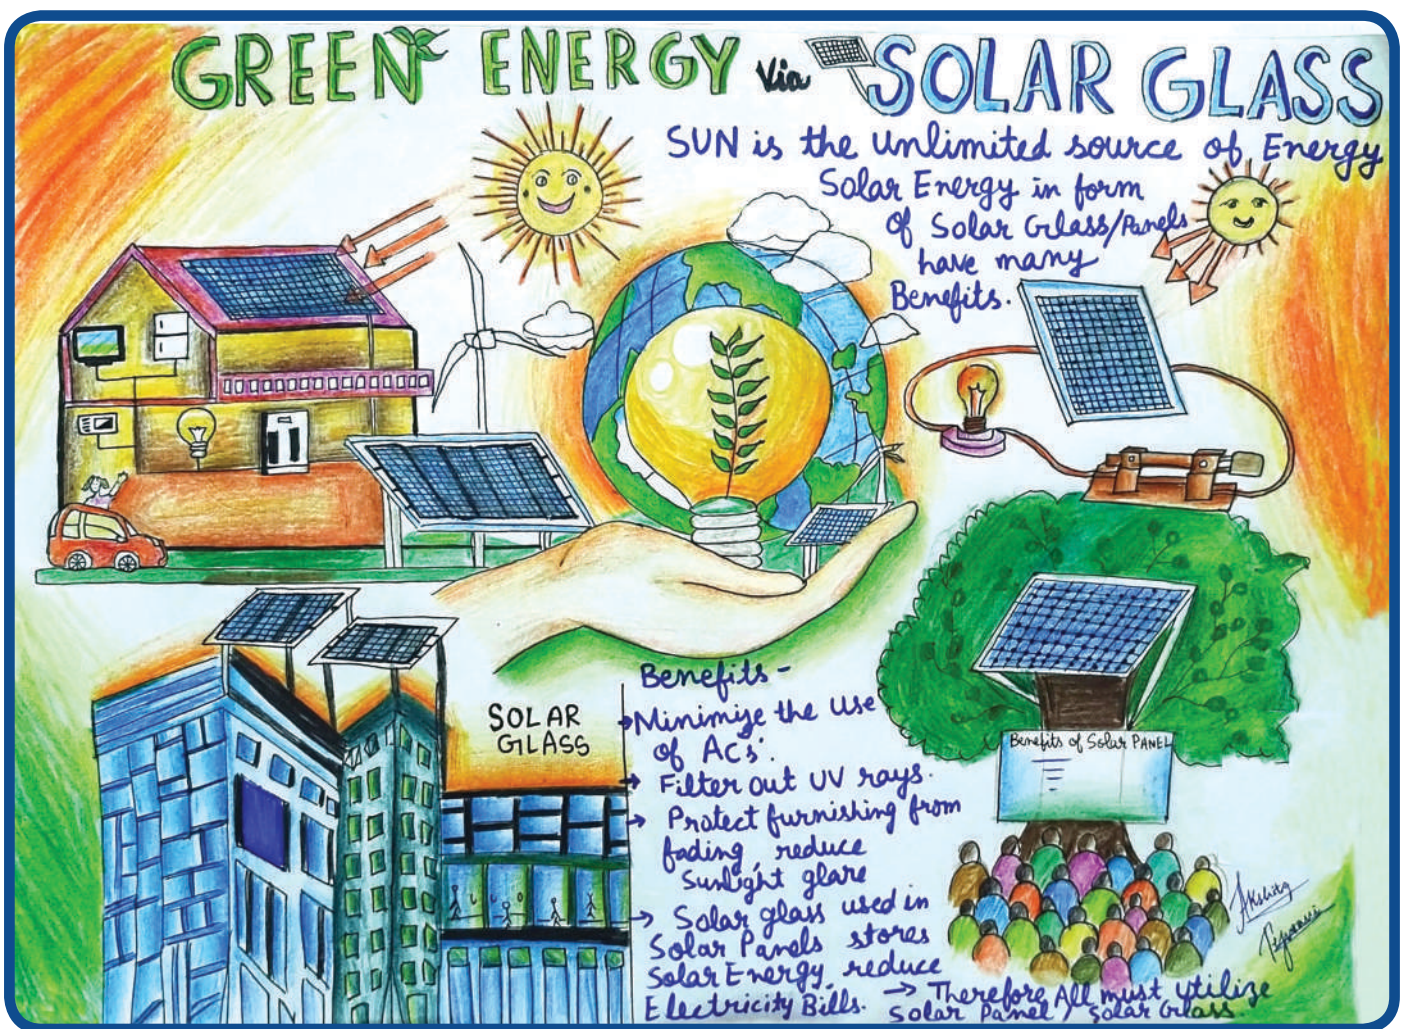 GREEN ENERGY Via SOLAR GLASS
SUN is the unlimited source of Energy
Solar Energy in form
of Solar Glass/Panels
have many
Benefits.
SOLAR
GLASS
Benefits -
→ Minimize the use
of ACs'.
→ Filter out UV rays.
→ Protect furnishing from
fading, reduce
Sunlight glare
→ Solar glass used in
Solar Panels stores
Solar Energy, reduce
Electricity Bills.
Benefits of Solar PANEL
→ Therefore All must utilize
Solar Panel / Solar Glass.